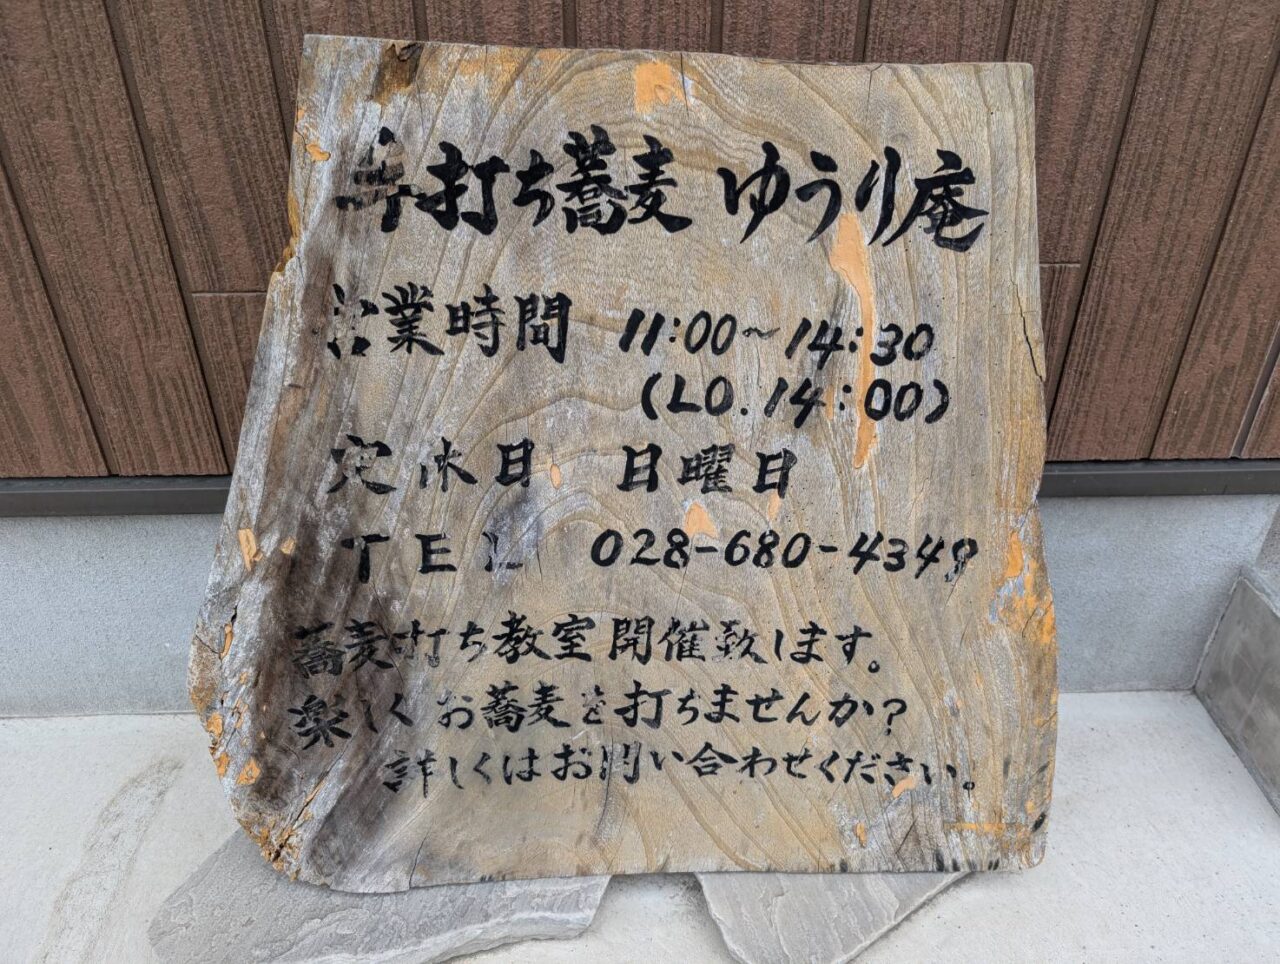 手打ち蕎麦 ゆうり庵
営業時間 11:00~14:30
(LO.14:00)
定休日 日曜日
TEL 028-680-4349
蕎麦打ち教室開催致します。
楽しくお蕎麦を打ちませんか?
詳しくはお問い合わせください。